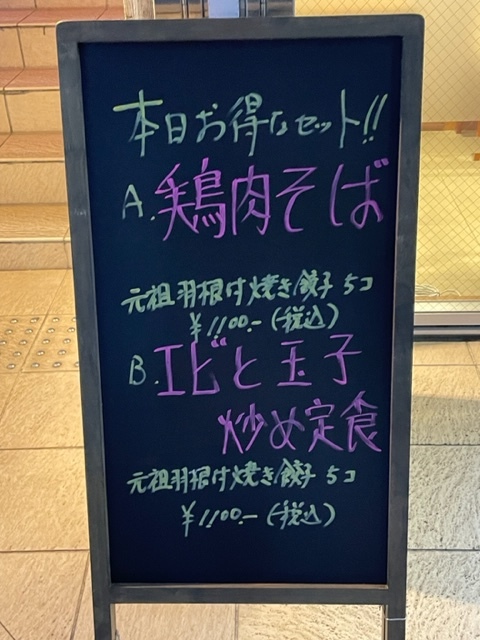 本日お得なセット!!
A.鶏肉そば
元祖羽根付焼き餃子 5コ
¥1100.-(税込)
B.エビと玉子
炒め定食
元祖羽根付焼き餃子 5コ
¥1100.-(税込)